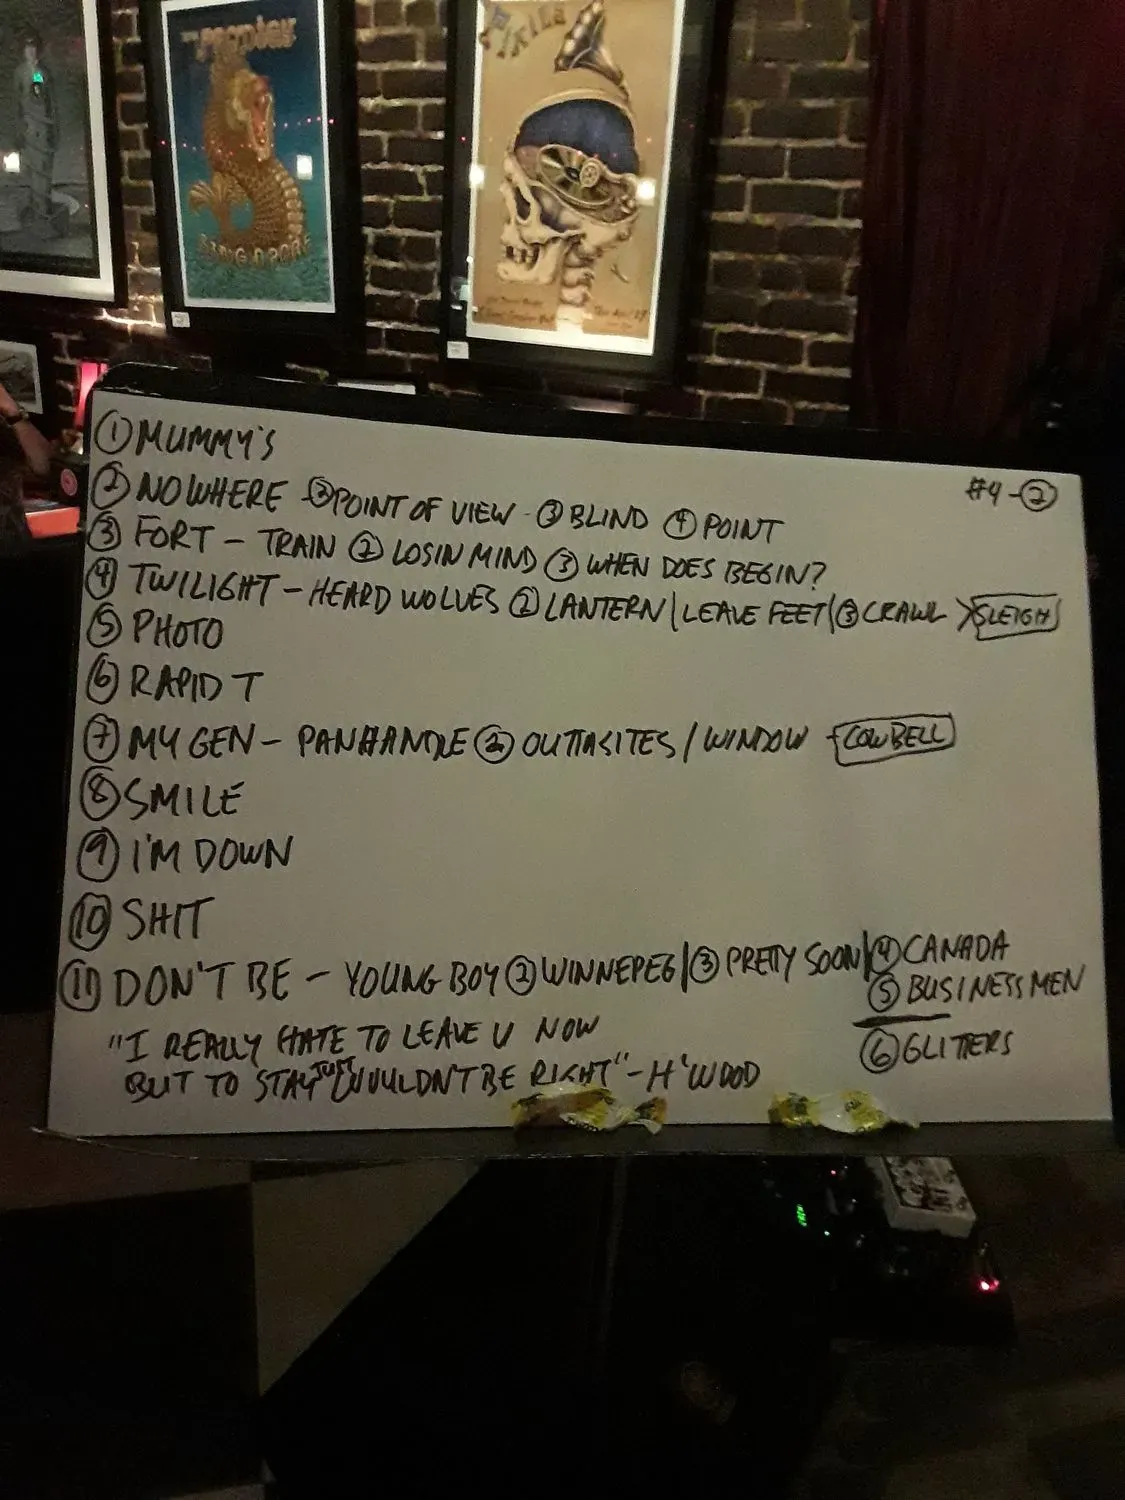 THE PRODIGY
SINGAPORE
PIXIES
① MUMMY'S
#4 - ②
② NOWHERE - ② POINT OF VIEW - ③ BLIND ④ POINT
③ FORT - TRAIN ② LOSIN MIND ③ WHEN DOES BEGIN?
④ TWILIGHT - HEARD WOLVES ② LANTERN / LEAVE FEET / ③ CRAWL > SLEIGH
⑤ PHOTO
⑥ RAPID T
⑦ MY GEN - PANHANDLE ② OUTTASITES / WINDOW - COWBELL
⑧ SMILE
⑨ I'M DOWN
⑩ SHIT
⑪ DON'T BE - YOUNG BOY ② WINNEPEG / ③ PRETTY SOON / ④ CANADA
⑤ BUSINESS MEN
⑥ GLITTERS
"I REALLY HATE TO LEAVE U NOW
BUT TO STAY JUST WOULDN'T BE RIGHT" - H'WOOD